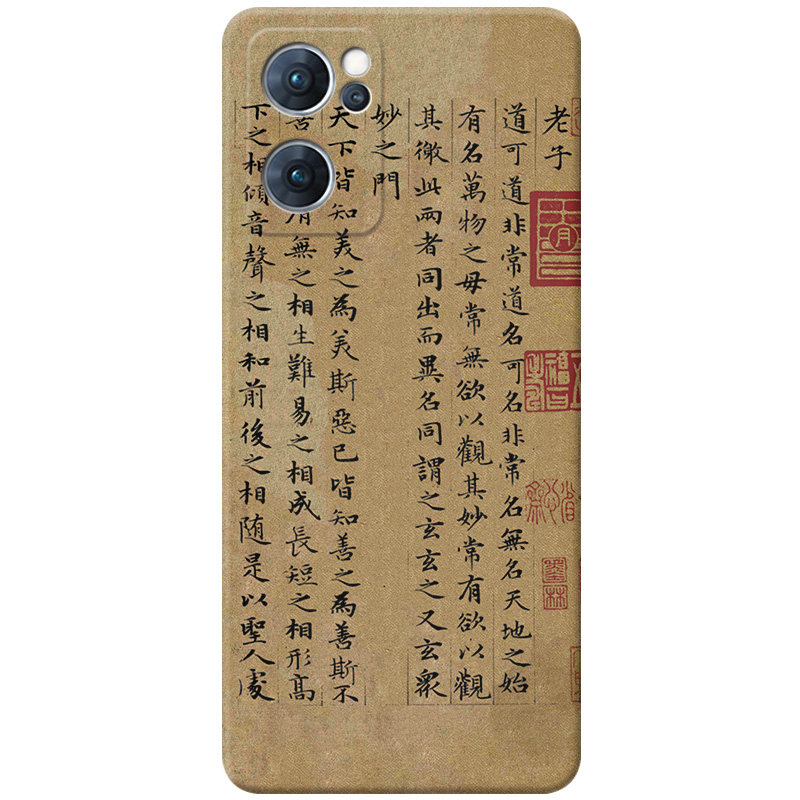 老子
道可道非常道名可名非常名無名天地之始
有名萬物之母常無欲以觀其妙常有欲以觀
其徼此兩者同出而異名同謂之玄玄之又玄衆
妙之門
天下皆知美之為美斯惡已皆知善之為善斯不
善有無之相生難易之相成長短之相形高
下之相傾音聲之相和前後之相随是以聖人處
墨林